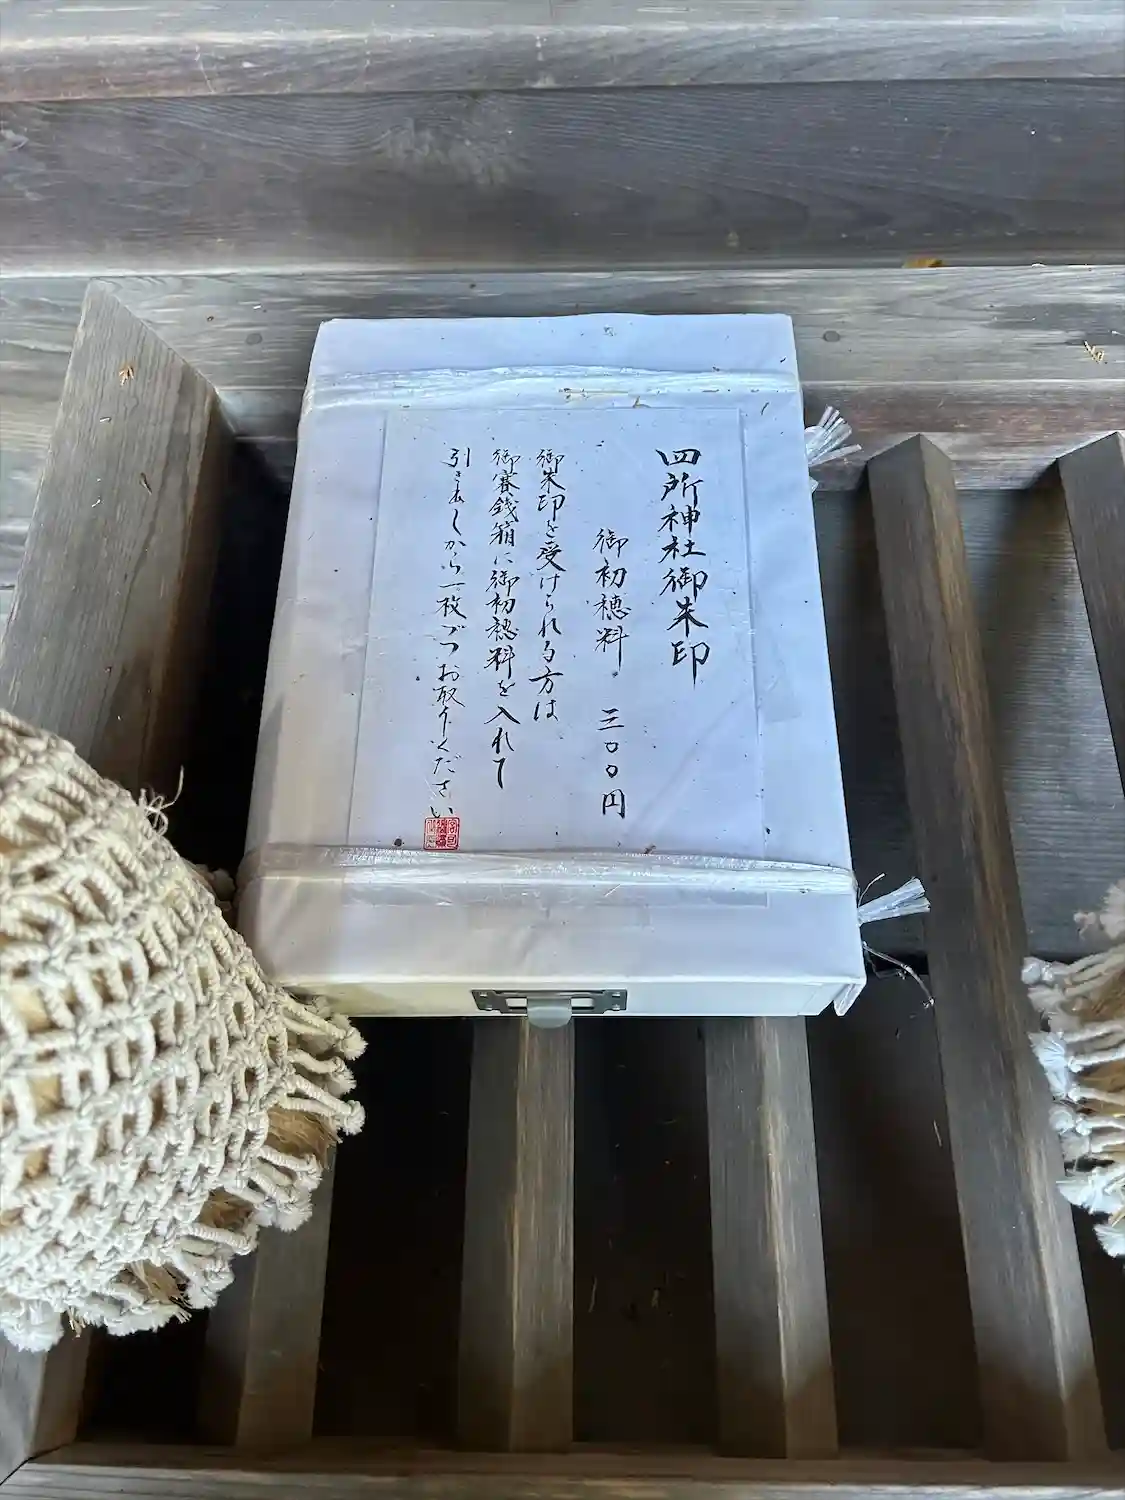 四所神社御朱印
御初穂料 三〇〇円
御朱印を受けられる方は
御賽銭箱に御初穂料を入れて
引き出しから一枚づつお取りください